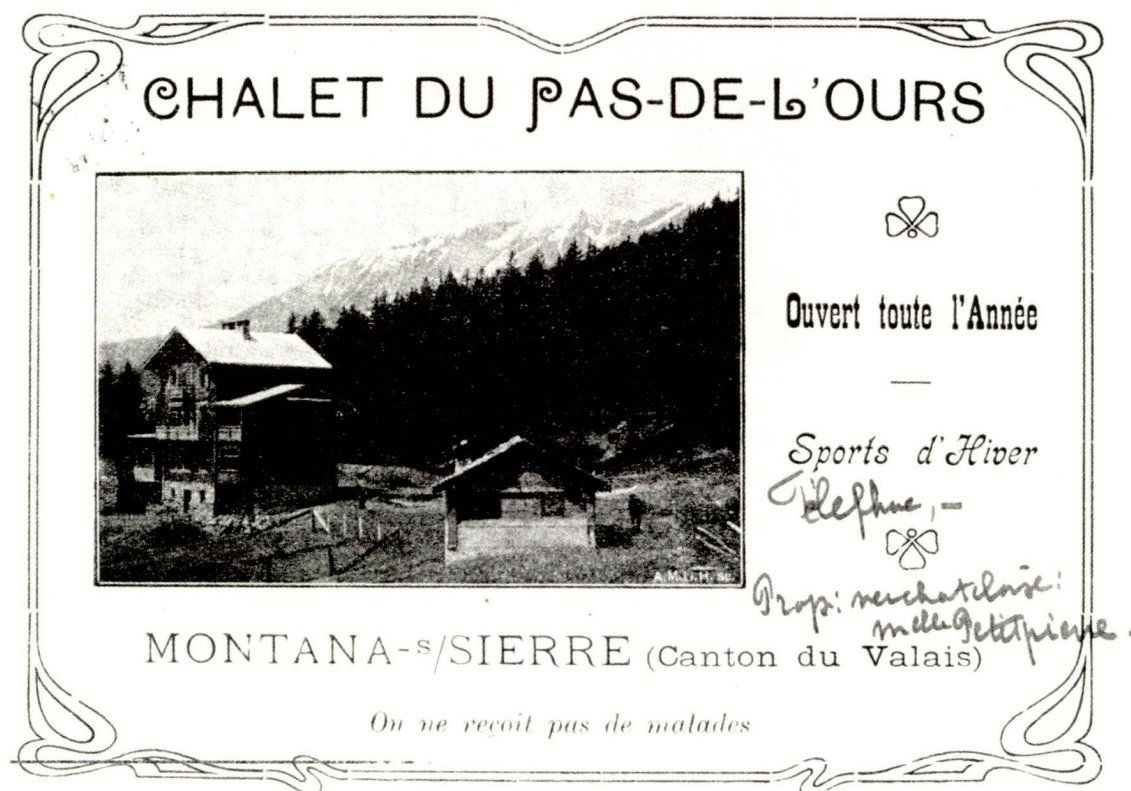 CHALET DU PAS-DE-L'OURS
Ouvert toute l'Année
Sports d'Hiver
Téléphone, -
A.M.D.H. sc.
Prop: neuchateloise:
Melle Petitpierre.
MONTANA-s/SIERRE (Canton du Valais)
On ne reçoit pas de malades